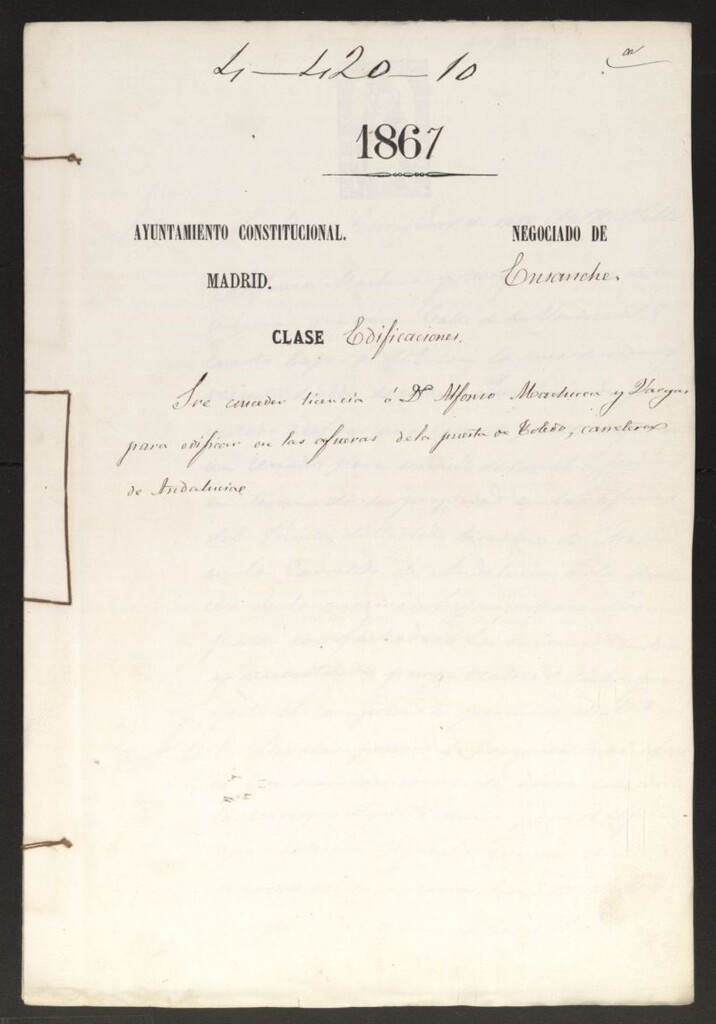 4-420-10
1867
AYUNTAMIENTO CONSTITUCIONAL.
MADRID.
NEGOCIADO DE
Ensanche.
CLASE Edificaciones.
Sre conceder licencia á Dn Alfonso y Vargas
para edificar en las afueras de la puerta de Toledo, carretera
de Andalucia